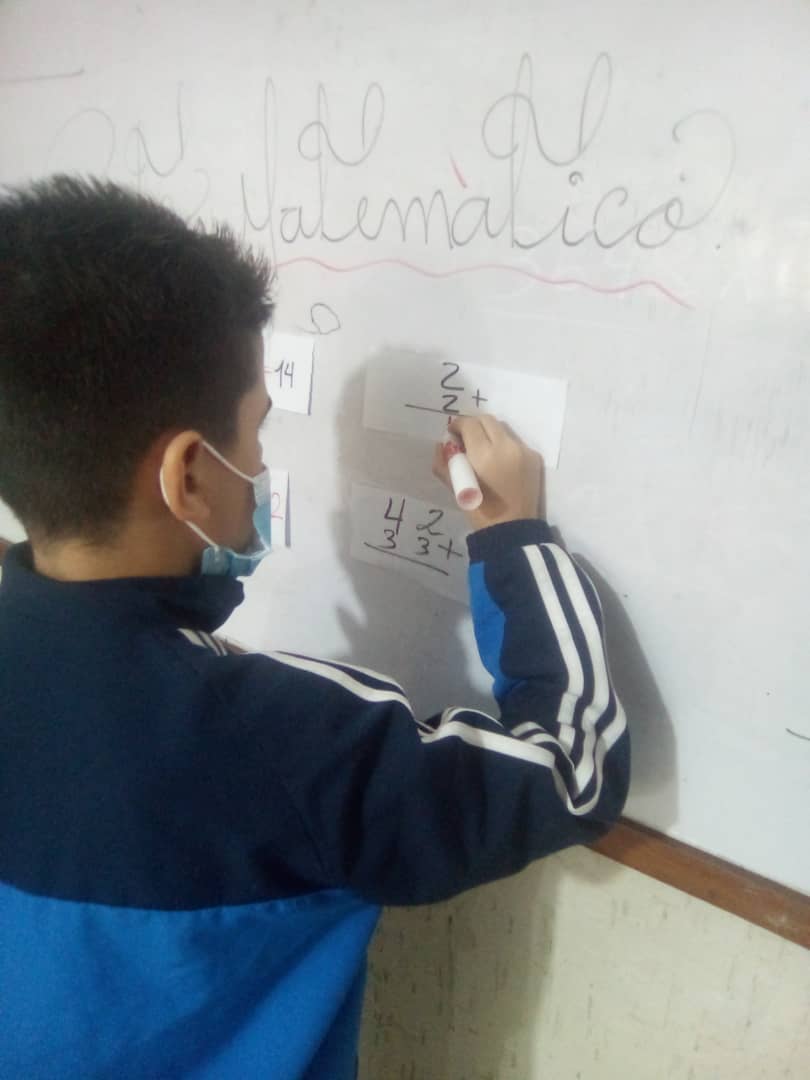 Matemàtico
=14
2
2 +
2
4 2
3 3+